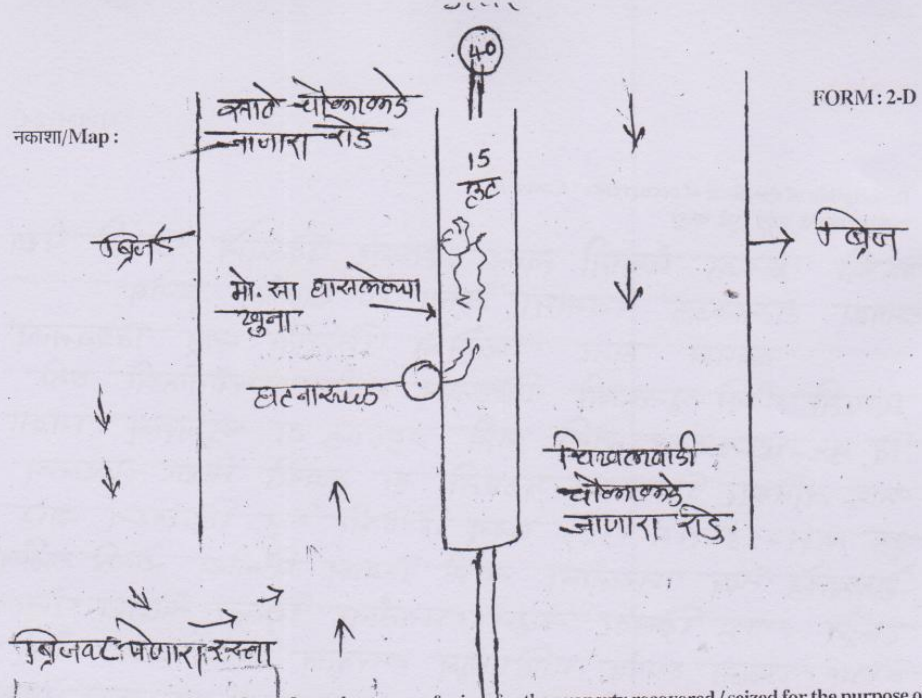 40
FORM : 2-D
साठे चौकाकडे
जाणारा रोड
नकाशा/Map :
15
फुट
ब्रिज
ब्रिज
मो. सा घासलेल्या
खुना
घटनास्थळ
चिखलवाडी
चौकाकडे
जाणारा रोड.
ब्रिजवर येणारा रस्ता
the property recovered / seized for the purpose o